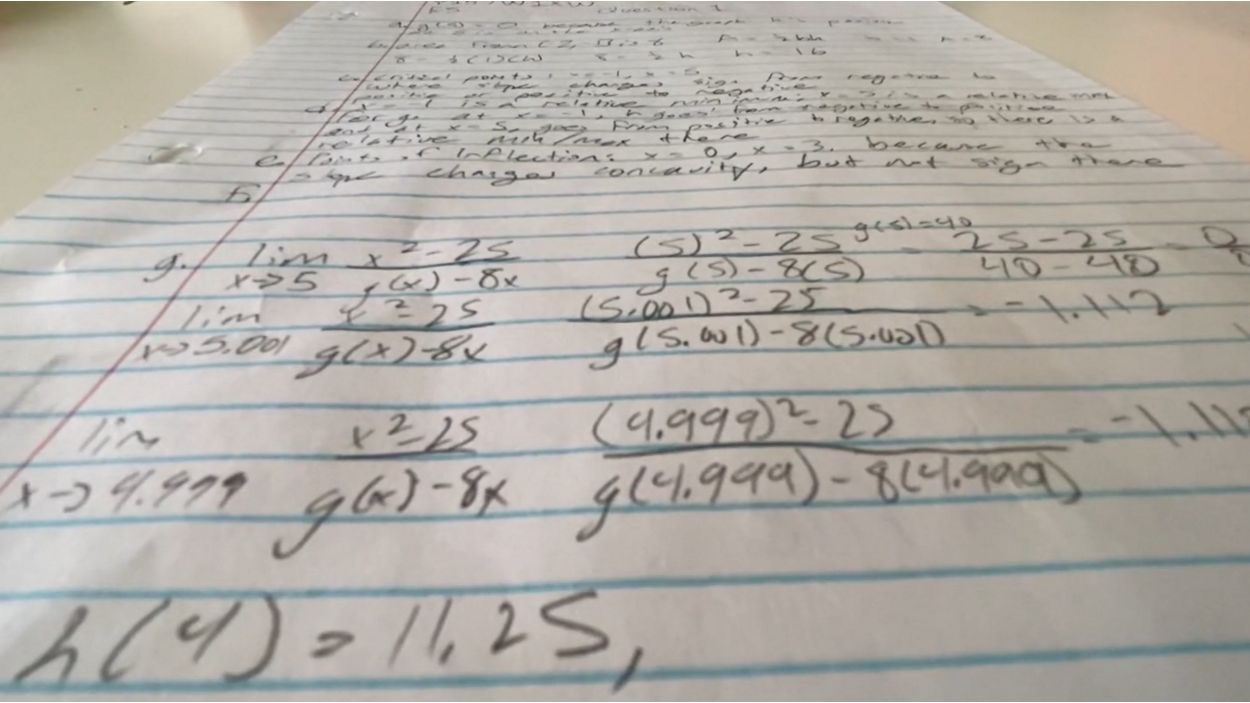 Question 1
because the graph
area from
A = ½bh
h = 16
c. critical points: x = -1, x = 5
where slope changes sign from negative to
positive or positive to negative
d. x = -1 is a relative minimum. x = 5 is a relative max
for g. at x = -1, h goes from negative to positive
and at x = 5, goes from positive to negative, so there is a
relative min/max there
e. Points of Inflection: x = 0, x = 3. because the
slope changes concavity, but not sign there
g. lim x→5 x²-25 / g(x)-8x (5)²-25 / g(5)-8(5) g(5)=40 = 25-25 / 40-40 = 0
lim x→5.001 x²-25 / g(x)-8x (5.001)²-25 / g(5.001)-8(5.001) = -1.112
lim x→4.999 x²-25 / g(x)-8x (4.999)²-25 / g(4.999)-8(4.999) = -1.11
h(4) = 11.25,